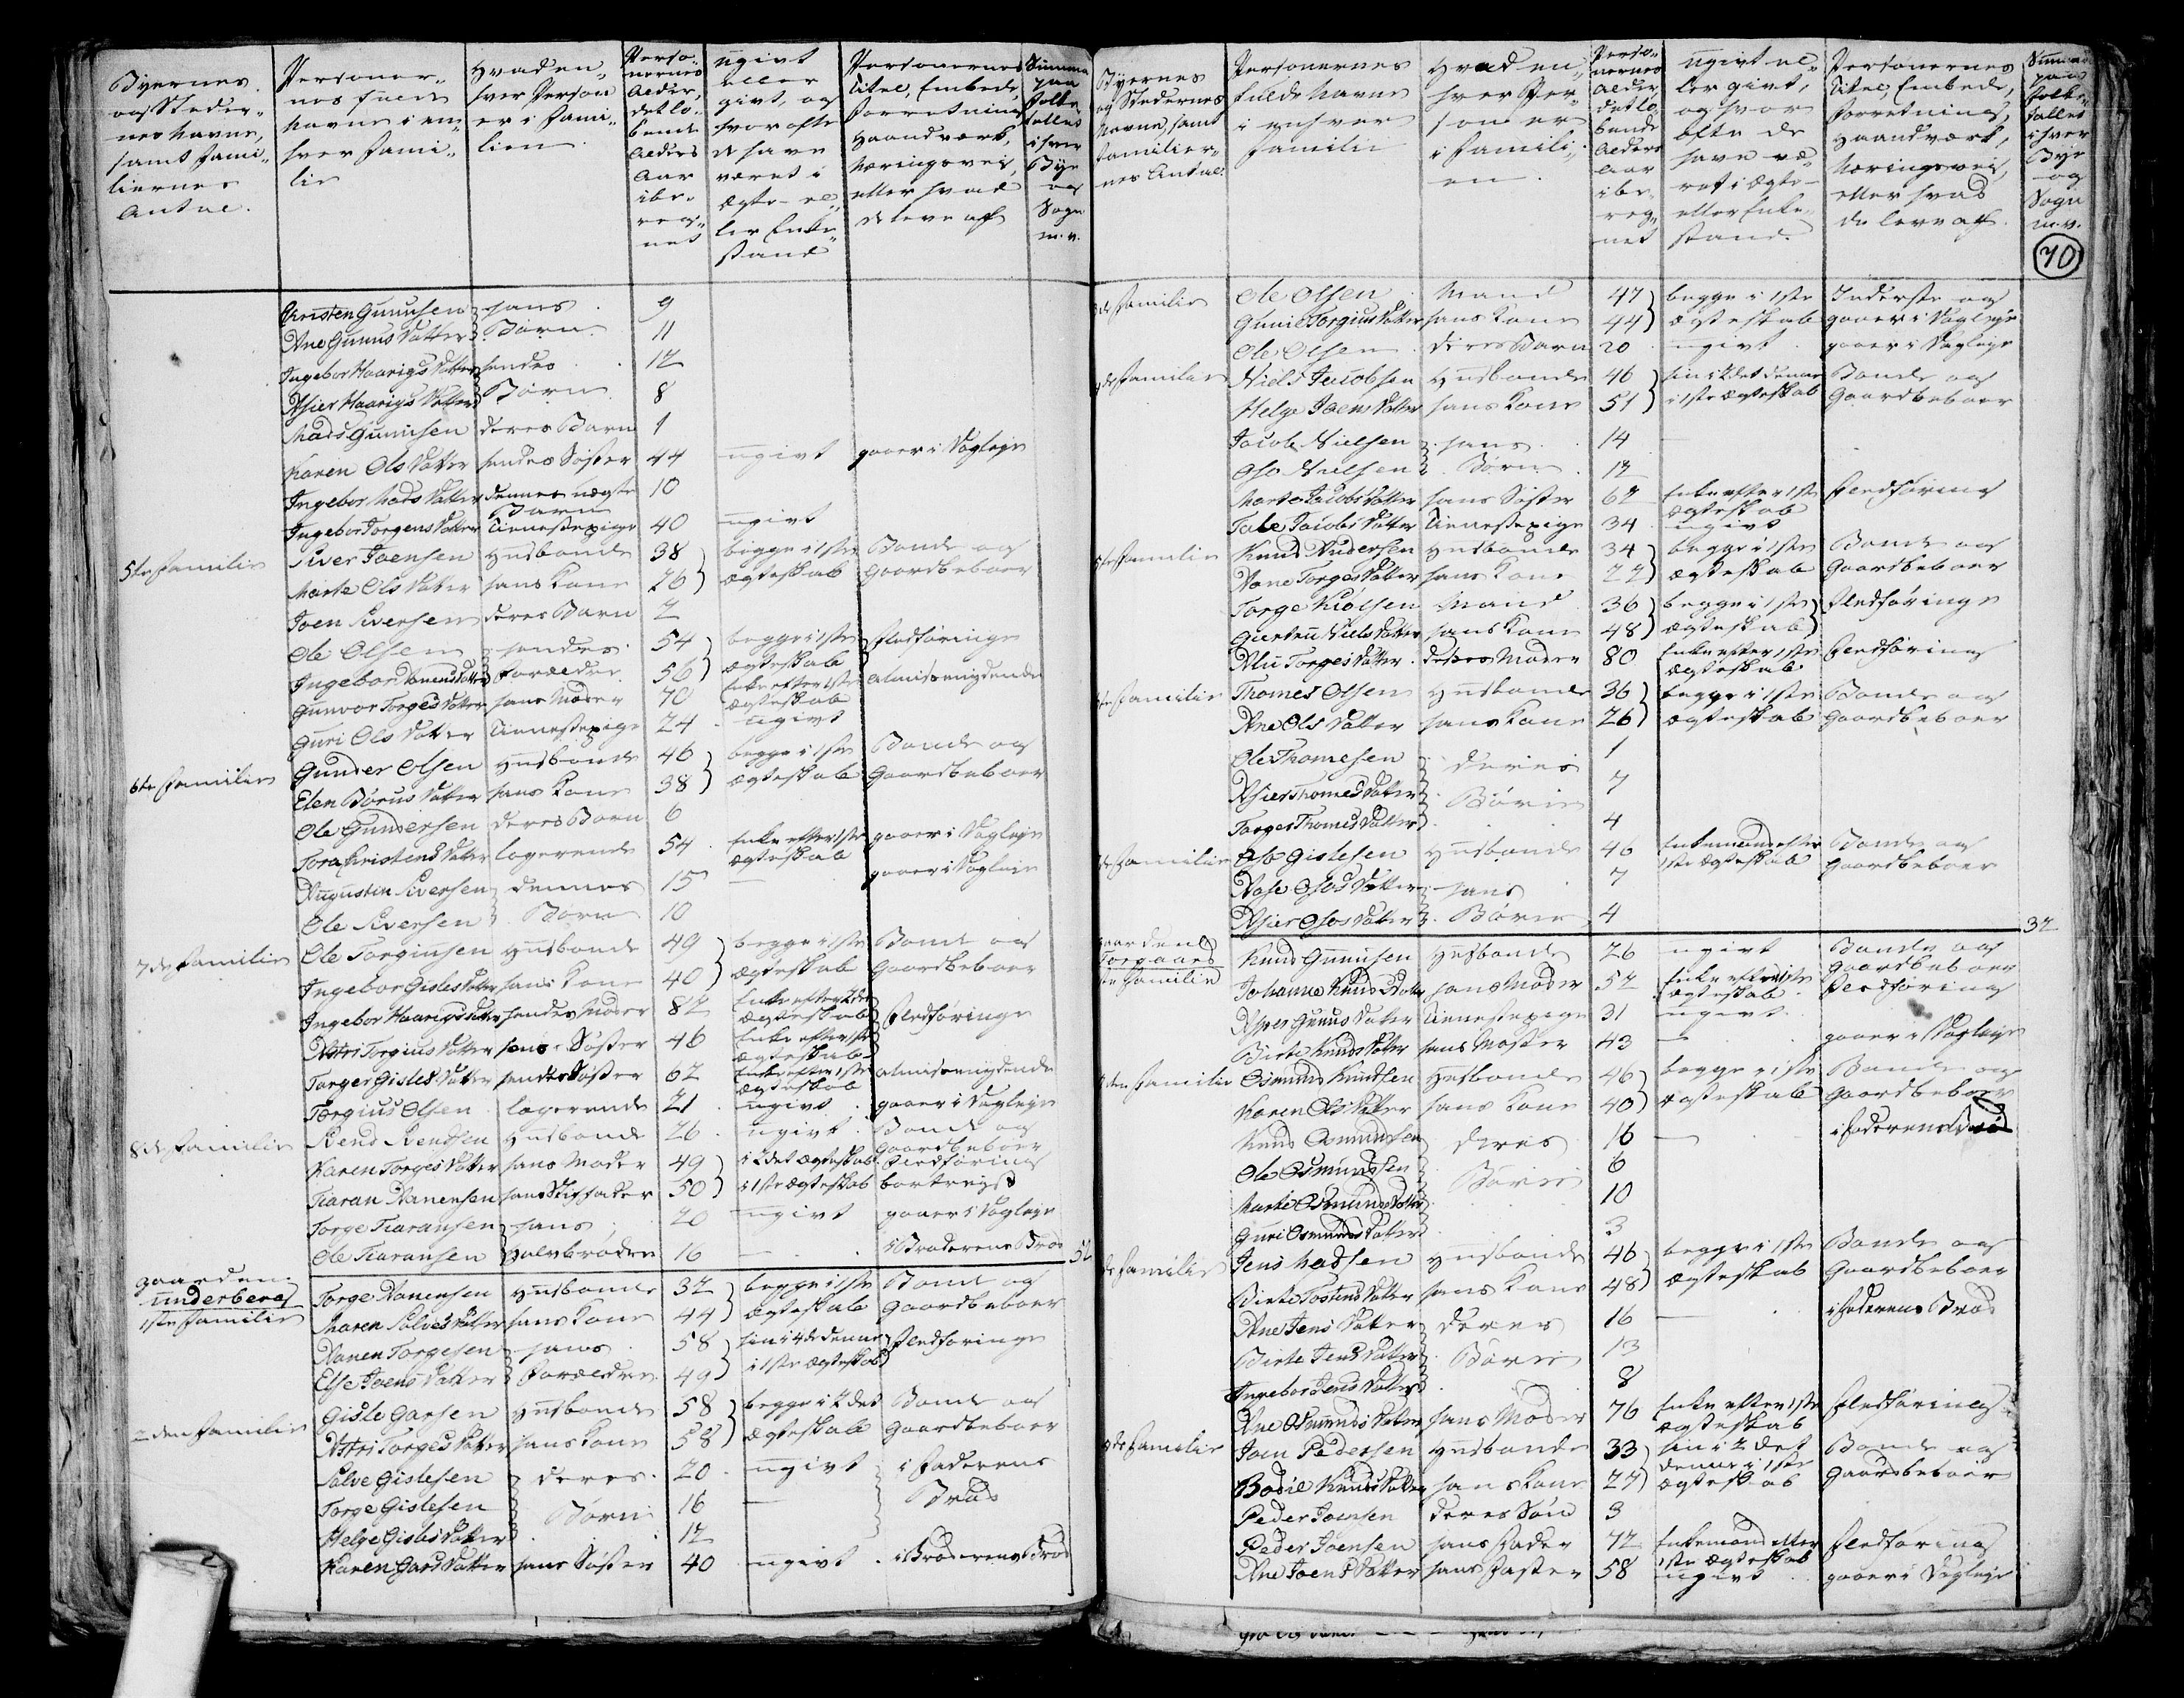 Byernes
og Steder-
nes Navne,
samt Fami-
liernes
Antal.
Personer-
nes fulde
Navne i en-
hver Fami-
lie
Hvad en-
hver Person
er i Fami-
lien.
Perso-
nernes
Alder,
det lø-
bende
Alders
Aar
ibe-
reg-
net
ugivt
eller
givt, og
hvor ofte
de have
været i
Ægte- el-
ler Enke-
stand
Personernes
Titel, Embede,
Forretning,
Haandværk,
Næringsvei,
eller hvad
de leve af
Summa
paa
Folke
tallet
i hver
Bye
og
Sogn
m.v.
Christen Gunusen hans 9
Ane Gunus Datter Børn 11
Ingebor Haarigs Datter hendes 12
Asier Haarigs Datter Børn 8
Mads Gunusen deres Barn 1
Karen Ols Datter hendes Søster 44 ugivt gaaer i Dagleye
Ingebor Mads Datter dennes uægte Barn 10
Ingebor Torgens Datter Tienestepige 40 ugivt
5te Familie Siver Joensen Husbonde 38 begge i 1ste Bonde og
Marte Ols Datter hans Kone 26 Ægteskab Gaardbeboer
Joen Siversen deres Barn 2
Ole Olsen hendes 54 begge i 1ste Fledføringe
Ingebor Datter Forældre 56 Ægteskab
Gunvor Torges Datter hans Moder 70 Enke efter 1ste Ægteskab almisenydende
Guri Ols Datter Tienestepige 24 ugivt
6te Familie Gunder Olsen Husbonde 46 begge i 1ste Bonde og
Elen Børus Datter hans Kone 38 Ægteskab Gaardbeboer
Ole Gundersen deres Barn 6
Tora Christens Datter logerende 54 Enke efter 1ste Ægteskab gaaer i Dagleye
Augustin Siversen dennes 15 — gaaer i Dagleye
Ole Siversen Børn 10
7de Familie Ole Torgiusen Husbonde 49 begge i 1ste Bonde og
Ingebor Gisles Datter hans Kone 40 Ægteskab Gaardbeboer
Ingebor Haarigs Datter hendes Moder 82 Enke efter 2det Ægteskab Fledføringe
Astri Torgius Datter hans Søster 46 Enke efter 1ste Ægteskab
Torger Gisles Datter hendes Søster 62 Enke efter 1ste Ægteskab almisenydende
Torgius Olsen logerende 21 ugivt gaaer i Dagleye
8de Familie Svend Svendsen Husbonde 26 ugivt Bonde og Gaardbeboer
Karen Torges Datter hans Moder 49 i 2det Ægteskab Fledføring
Tiaran Nanensen hans Stiffader 50 i 1ste Ægteskab bortreist
Torge Tiaransen hans 20 ugivt gaaer i Dagleye
Ole Tiaransen Halvbrødre 16 — i Broderens Brød
Gaarden
Underberg
1ste Familie Torge Nanensen Husbonde 32 begge i 1ste Bonde og
Maren Salves Datter hans Kone 44 Ægteskab Gaardbeboer
Nanen Torgesen hans 58 han i 4de denne Fledføringe
Else Joens Datter Forældre 49 i 1ste Ægteskab
2den Familie Gisle Garsen Husbonde 58 begge i 2det Bonde og
Astri Torges Datter hans Kone 58 Ægteskab Gaardbeboer
Salve Gislesen deres 20 ugivt i Faderens
Torge Gislesen Børn 16 — Brød
Helge Gisles Datter 12 —
Karen Gars Datter hans Søster 40 ugivt i Broderens Brød
Byernes
og Stedernes
Navne, samt
Familier-
nes Antal.
Personernes
fulde Navne
i enhver
Familie
Hvad en-
hver Per-
son er
i Famili-
en.
Perso-
nernes
Alder,
det lø-
bende
Alders
Aar
ibe-
reg-
net
ugivt el-
ler givt,
og hvor
ofte de
have væ-
ret i Ægte-
eller Enke-
stand.
Personernes
Titel, Embede,
Forretning,
Haandværk,
Næringsvei,
eller hvad
de leve af.
Summa
paa
Folke-
tallet
i hver
Bye
og
Sogn
m.v.
70
Familie Ole Olsen Mand 47 begge i 1ste Inderste og
Gunil Torgius Datter hans Kone 44 Ægteskab gaaer i Dagleye
Ole Olsen deres Barn 20 ugivt gaaer i Dagleye
Familie Niels Jacobsen Husbonde 46 han i 2det denne Bonde og
Helge Joens Datter hans Kone 51 i 1ste Ægteskab Gaardbeboer
Jacob Nielsen hans 14
Oso Nielsen Børn 12
Marte Jacobs Datter hans Søster 62 Enke efter 1ste Ægteskab Fledføring
Tale Jacobs Datter Tienestepige 34 ugivt
5te Familie Knud Andersen Husbonde 34 begge i 1ste Bonde og
Nane Torges Datter hans Kone 27 Ægteskab Gaardbeboer
Torge Kiølsen Mand 36 begge i 1ste Fledføringe
Giertru Niels Datter hans Kone 48 Ægteskab
Alu Torges Datter deres Moder 80 Enke efter 1ste Ægteskab Fledføring
Familie Thomes Olsen Husbonde 36 begge i 1ste Bonde og
Ane Ols Datter hans Kone 26 Ægteskab Gaardbeboer
Ole Thomesen deres 1
Asier Thomes Datter Børn 7
Torger Thomes Datter 4
Familie Oso Gislesen Husbonde 46 Enkemand efter Bonde og
1ste Ægteskab Gaardbeboer
Aase Osos Datter hans 7
Asier Osos Datter Børn 4
32
Gaarden
Torgaard
Familie Knud Gunusen Husbonde 26 ugivt Bonde og Gaardbeboer
Johanne Knuds Datter hans Moder 52 Enke efter 1ste Ægteskab Fledføring
Gunus Datter Tienestepige 31 ugivt
Birte Knuds Datter hans Moster 43 — gaaer i Dagleye
den Familie Osmund Knudsen Husbonde 46 begge i 1ste Bonde og
Karen Ols Datter hans Kone 40 Ægteskab Gaardbeboer
Knud Osmundsen deres 16 — i Faderens Brød
Ole Osmundsen Børn 6
Marte Osmunds Datter 10
Guri Osmunds Datter 3
de Familie Jens Madsen Husbonde 46 begge i 1ste Bonde og
Birte Tostens Datter hans Kone 48 Ægteskab Gaardbeboer
Ane Jens Datter deres 16 — i Faderens Brød
Birte Jens Datter Børn 13
Ingebor Jens Datter 8
Ane Osmunds Datter hans Moder 76 Enke efter 1ste Ægteskab Fledføring
de Familie Joen Pedersen Husbonde 33 han i 2det Bonde og
Bodil Knuds Datter hans Kone 27 denne i 1ste Ægteskab Gaardbeboer
Peder Joensen deres Søn 3
Peder Joensen hans Fader 72 Enkemand efter 1ste Ægteskab Fledføring
Ane Joens Datter hans Faster 58 ugivt gaaer i Dagleye